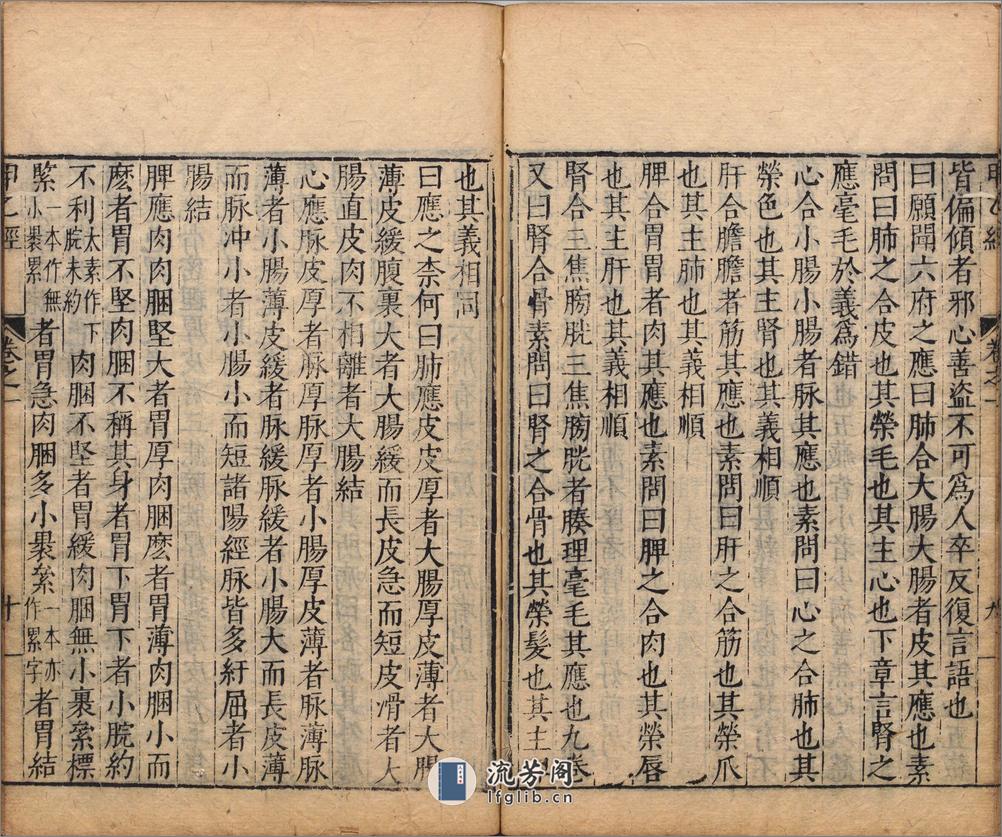 甲乙經 卷之一 九
皆偏傾者邪心善盜不可為人卒反復言語也
曰願聞六府之應曰肺合大腸大腸者皮其應也素
問曰肺之合皮也其榮毛也其主心也下章言腎之
應毫毛於義為錯
心合小腸小腸者脉其應也素問曰心之合肺也其
榮色也其主腎也其義相順
肝合膽膽者筋其應也素問曰肝之合筋也其榮爪
也其主肺也其義相順
脾合胃胃者肉其應也素問曰脾之合肉也其榮唇
也其主肝也其義相順
腎合三焦膀胱三焦膀胱者腠理毫毛其應也九卷
又曰腎合骨素問曰腎之合骨也其榮髮也其主
也其義相同
曰應之柰何曰肺應皮皮厚者大腸厚皮薄者大腸
薄皮緩腹裏大者大腸緩而長皮急而短皮滑者大
腸直皮肉不相離者大腸結
心應脉皮厚者脉厚脉厚者小腸厚皮薄者脉薄脉
薄者小腸薄皮緩者脉緩脉緩者小腸大而長皮薄
而脉冲小者小腸小而短諸陽經脉皆多紆屈者小
腸結
脾應肉肉䐃堅大者胃厚肉䐃麽者胃薄肉䐃小而
麽者胃不堅肉䐃不稱其身者胃下胃下者小脘約
不利太素作下脘未約肉䐃不堅者胃緩肉䐃無小裹絫標
緊一本作無小裹累者胃急肉䐃多小裹絫一本亦作累字者胃結
甲乙經 卷之一 十
流芳阁
lfglib.cn